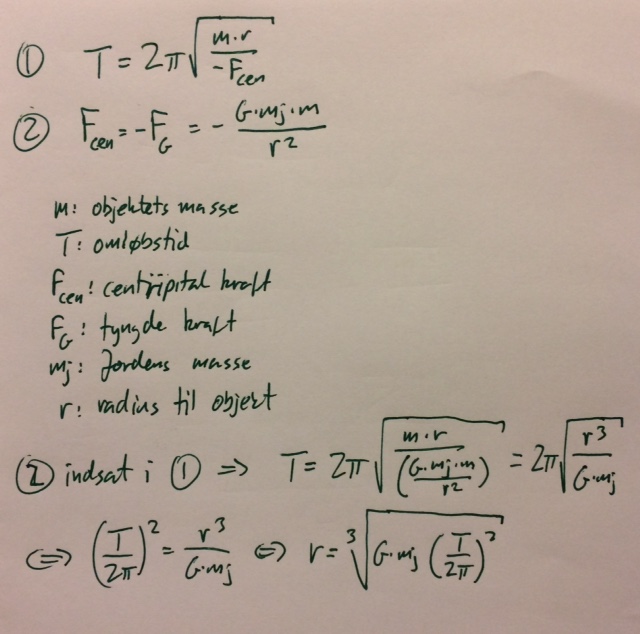 ① T = 2π√(m·r / -F_cen)
② F_cen = -F_G = - G·mj·m / r²
m: objektets masse
T: omløbstid
F_cen: centripital kraft
F_G: tyngde kraft
mj: Jordens masse
r: radius til objekt
② indsat i ① => T = 2π√(m·r / (G·mj·m / r²)) = 2π√(r³ / G·mj)
<=> (T / 2π)² = r³ / G·mj <=> r = ³√(G·mj (T / 2π)²)